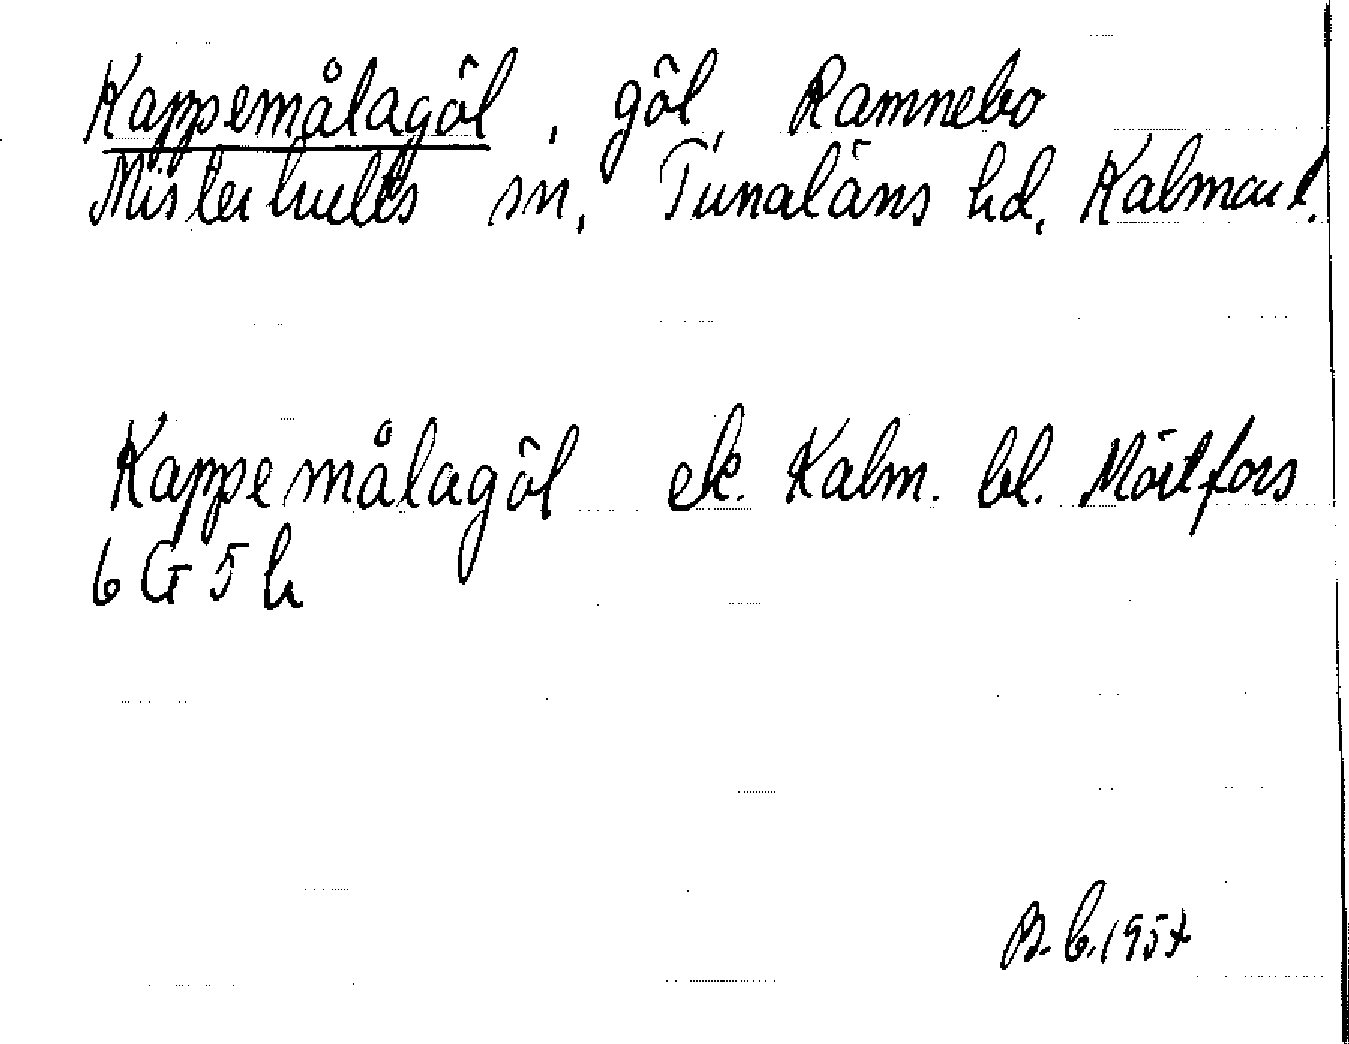 Kappemålagöl, göl, Ramnebo
Misterhults sn, Tunaläns hd, Kalmar l.
Kappemålagöl ek. Kalm. bl. Mörtfors
6 G 5 h
B.b. 1957